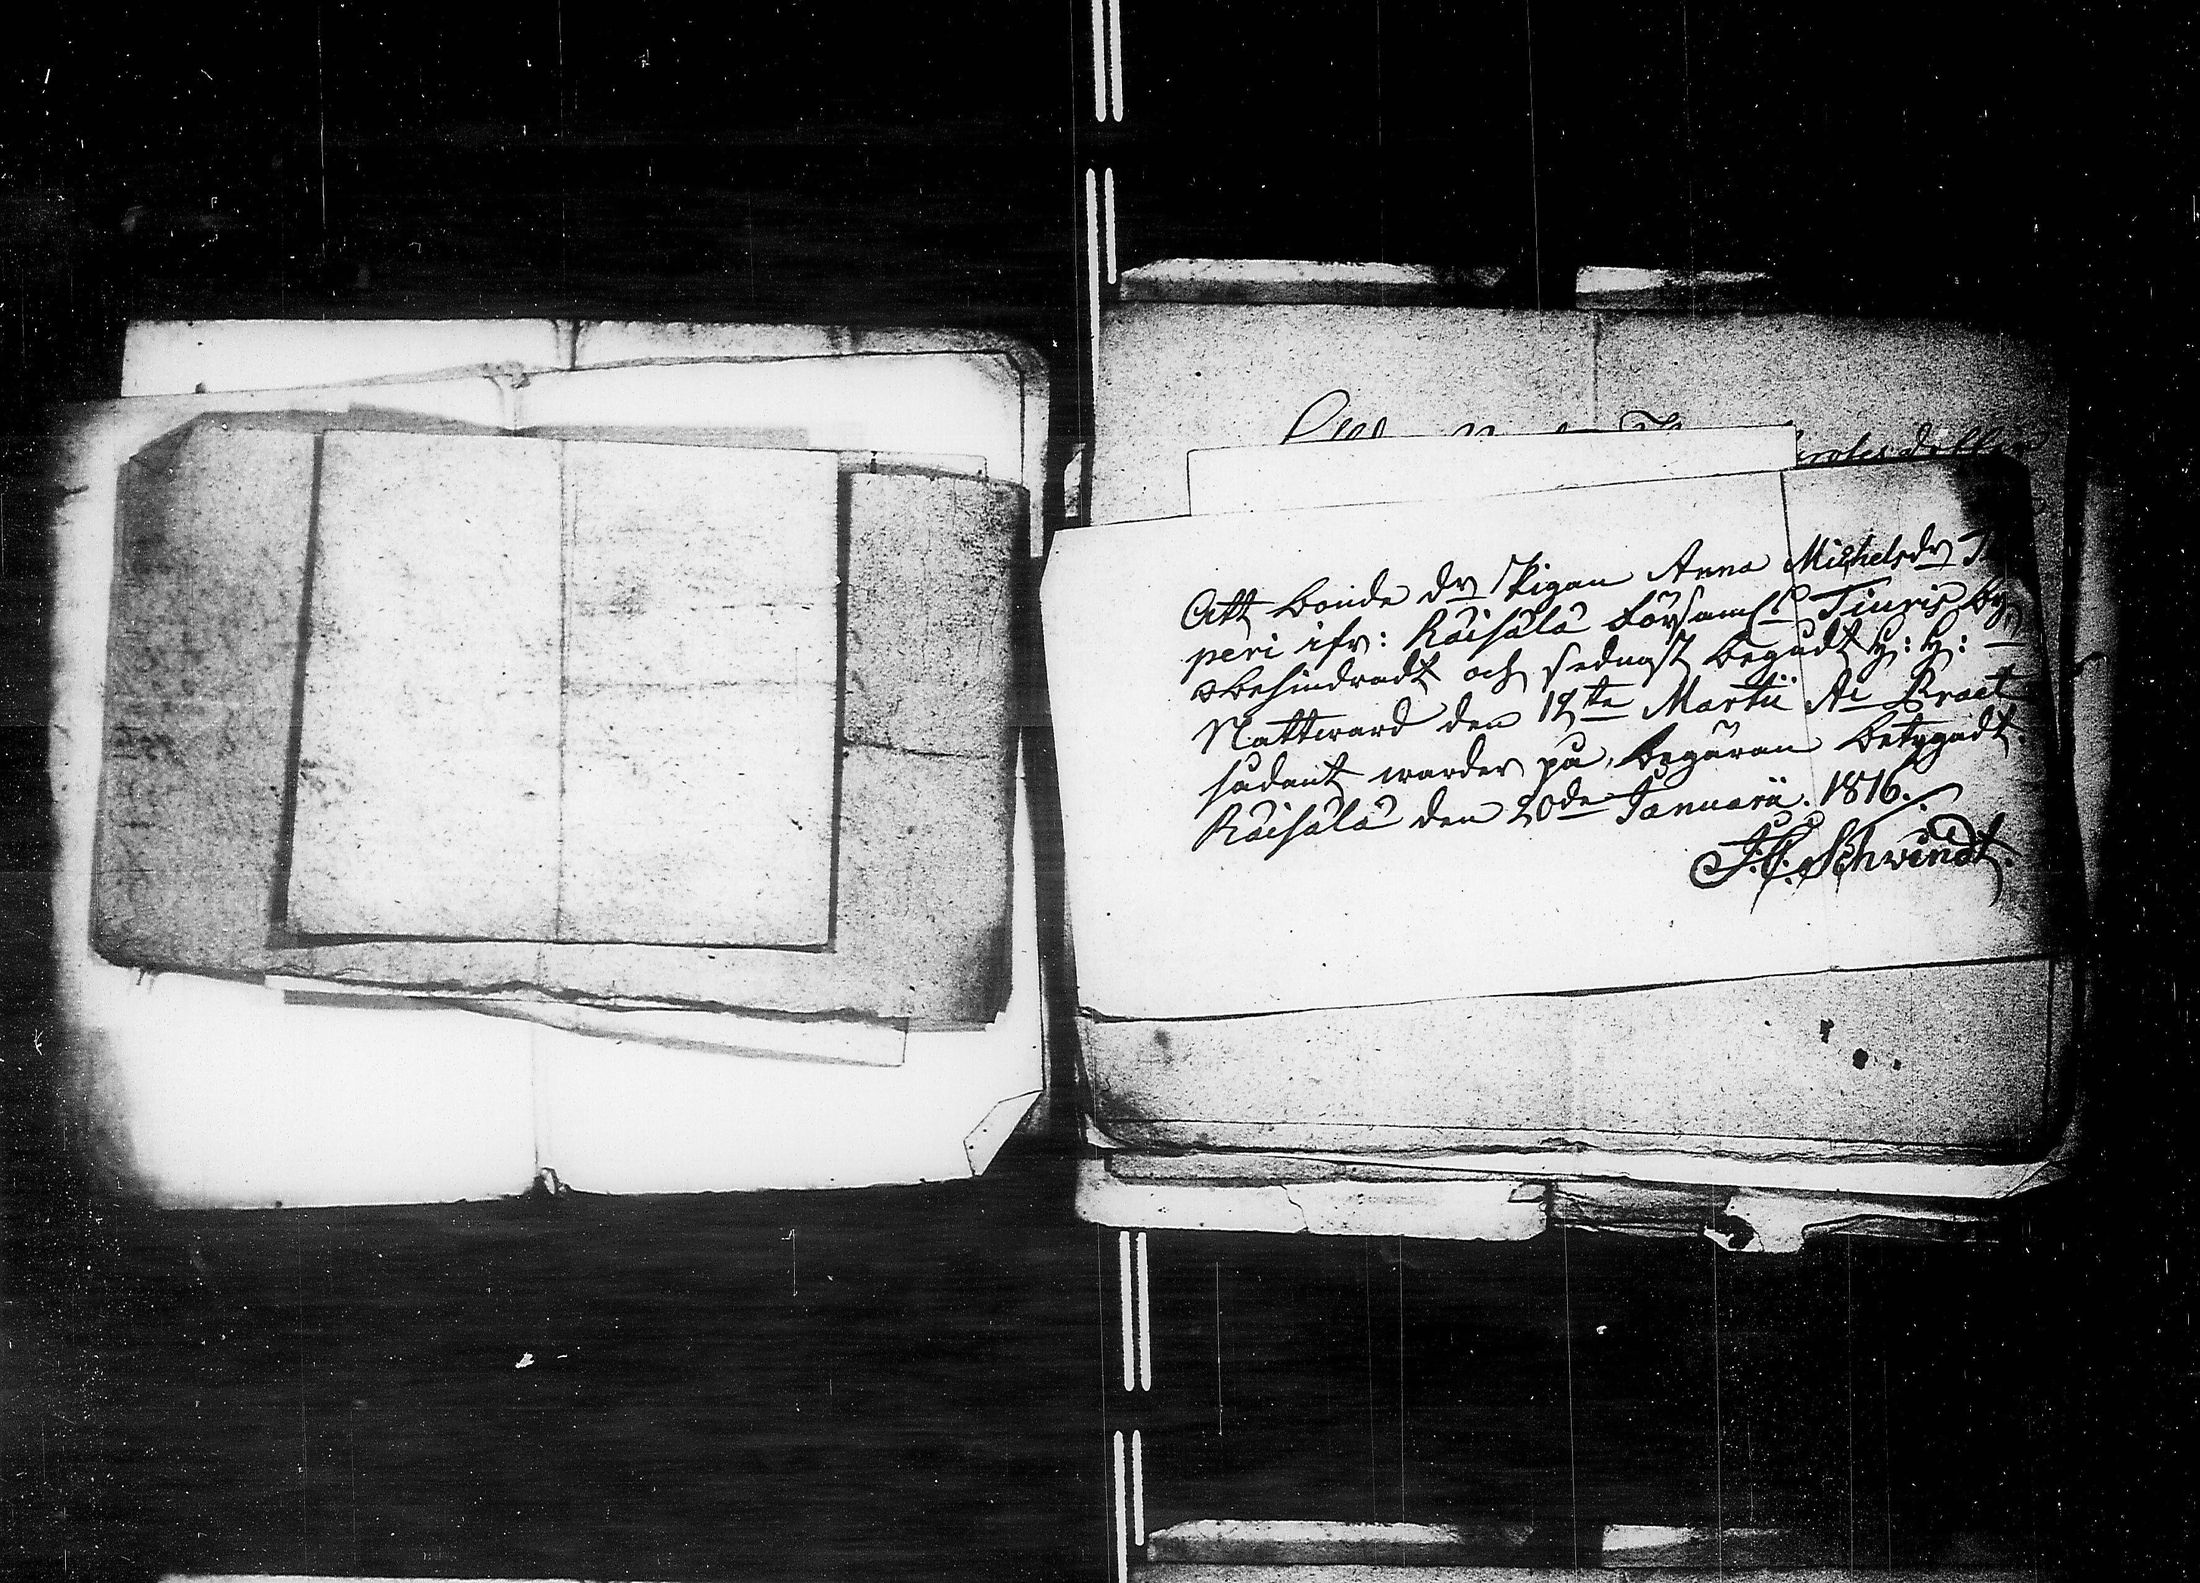 Att bonde dr Pigan Anna Michelsdr
peri ifr: Räisälä Församls Tiuris by
obehindradt och sednast begådt H: H: —
Nattward den 12te Martii Ai Praet
sådant warder på begäran betygadt.
Räisälä den 20de Januarii. 1816.
J. C. Schvindt.